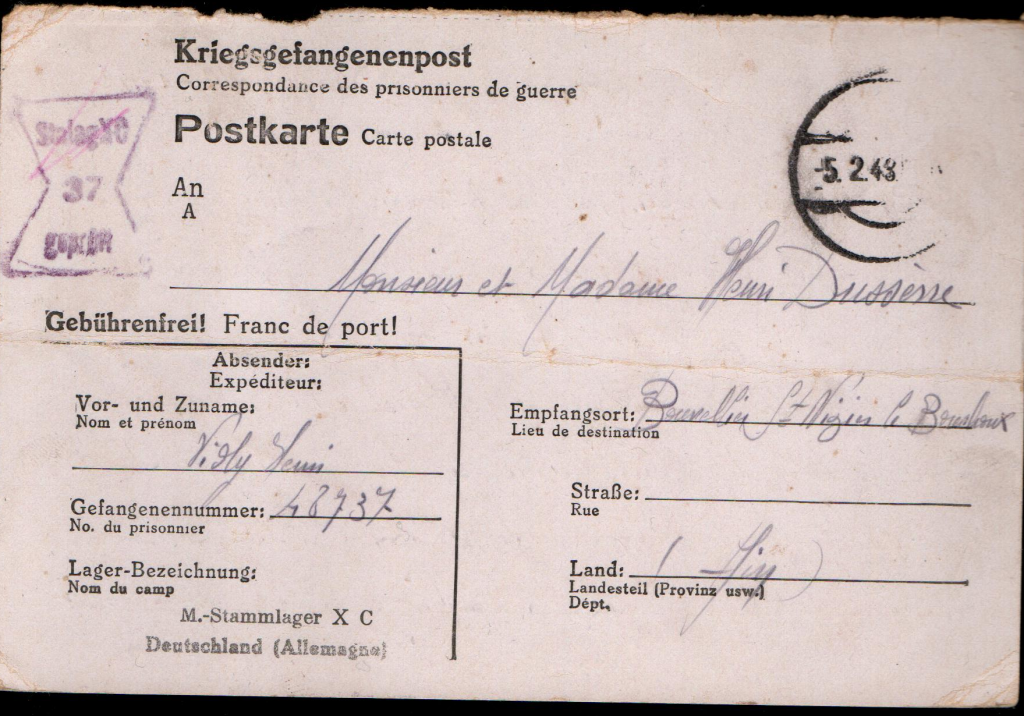 Kriegsgefangenenpost
Correspondance des prisonniers de guerre
Postkarte Carte postale
Stalag XC
37
geprüft
-5.2.43
An
A
Monsieur et Madame Henri Dusserre
Gebührenfrei! Franc de port!
Absender:
Expéditeur:
Vor- und Zuname:
Nom et prénom
Henri
Gefangenennummer: 48737
No. du prisonnier
Lager-Bezeichnung:
Nom du camp
M.-Stammlager X C
Deutschland (Allemagne)
Empfangsort: St
Lieu de destination
Straße:
Rue
Land: (Ain)
Landesteil (Provinz usw.)
Dépt.